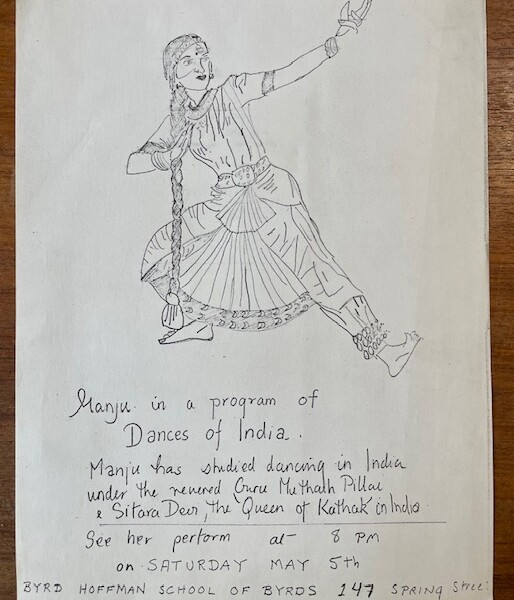 Manju in a program of
Dances of India.
Manju has studied dancing in India
under the revered Guru Muthath Pillai
& Sitara Devi, the "Queen of Kathak" in India
See her perform at 8 PM
on SATURDAY MAY 5th
BYRD HOFFMAN SCHOOL OF BYRDS 147 SPRING Street